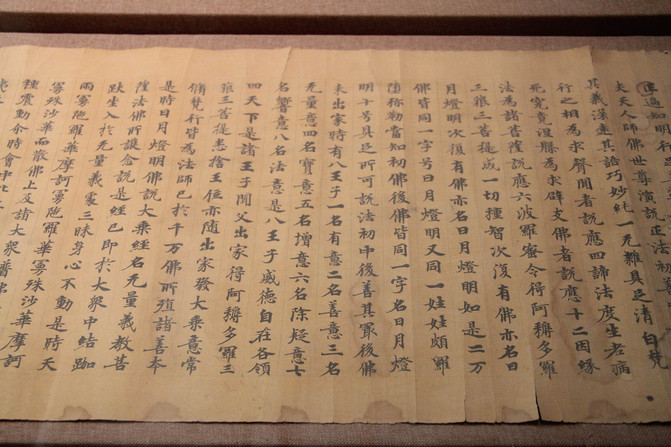 遍知明行
天人師佛世尊演說正法初善
其義深遠其語巧妙純一无雜具足清白梵
行之相為求聲聞者說應四諦法度生老病
死究竟涅槃為求辟支佛者說應十二因緣
法為諸菩薩說應六波羅蜜令得阿耨多羅
三藐三菩提成一切種智次復有佛亦名日
月燈明次復有佛亦名日月燈明如是二万
佛皆同一字号日月燈明又同一姓姓頗羅
墮弥勒當知初佛後佛皆同一字名日月燈
明十号具足所可說法初中後善其冣後佛
未出家時有八王子一名有意二名善意三名
无量意四名寶意五名增意六名除疑意七
名嚮意八名法意是八王子威德自在各領
四天下是諸王子聞父出家得阿耨多羅三
藐三菩提悉捨王位亦隨出家發大乘意常
脩梵行皆為法師已於千万佛所殖諸善本
是時日月燈明佛說大乘經名无量義教菩
薩法佛所護念說是經已即於大衆中結跏
趺坐入於无量義處三昧身心不動是時天
雨曼陁羅華摩訶曼陁羅華曼殊沙華摩訶
曼殊沙華而散佛上及諸大衆普佛
種震動尒時會中比